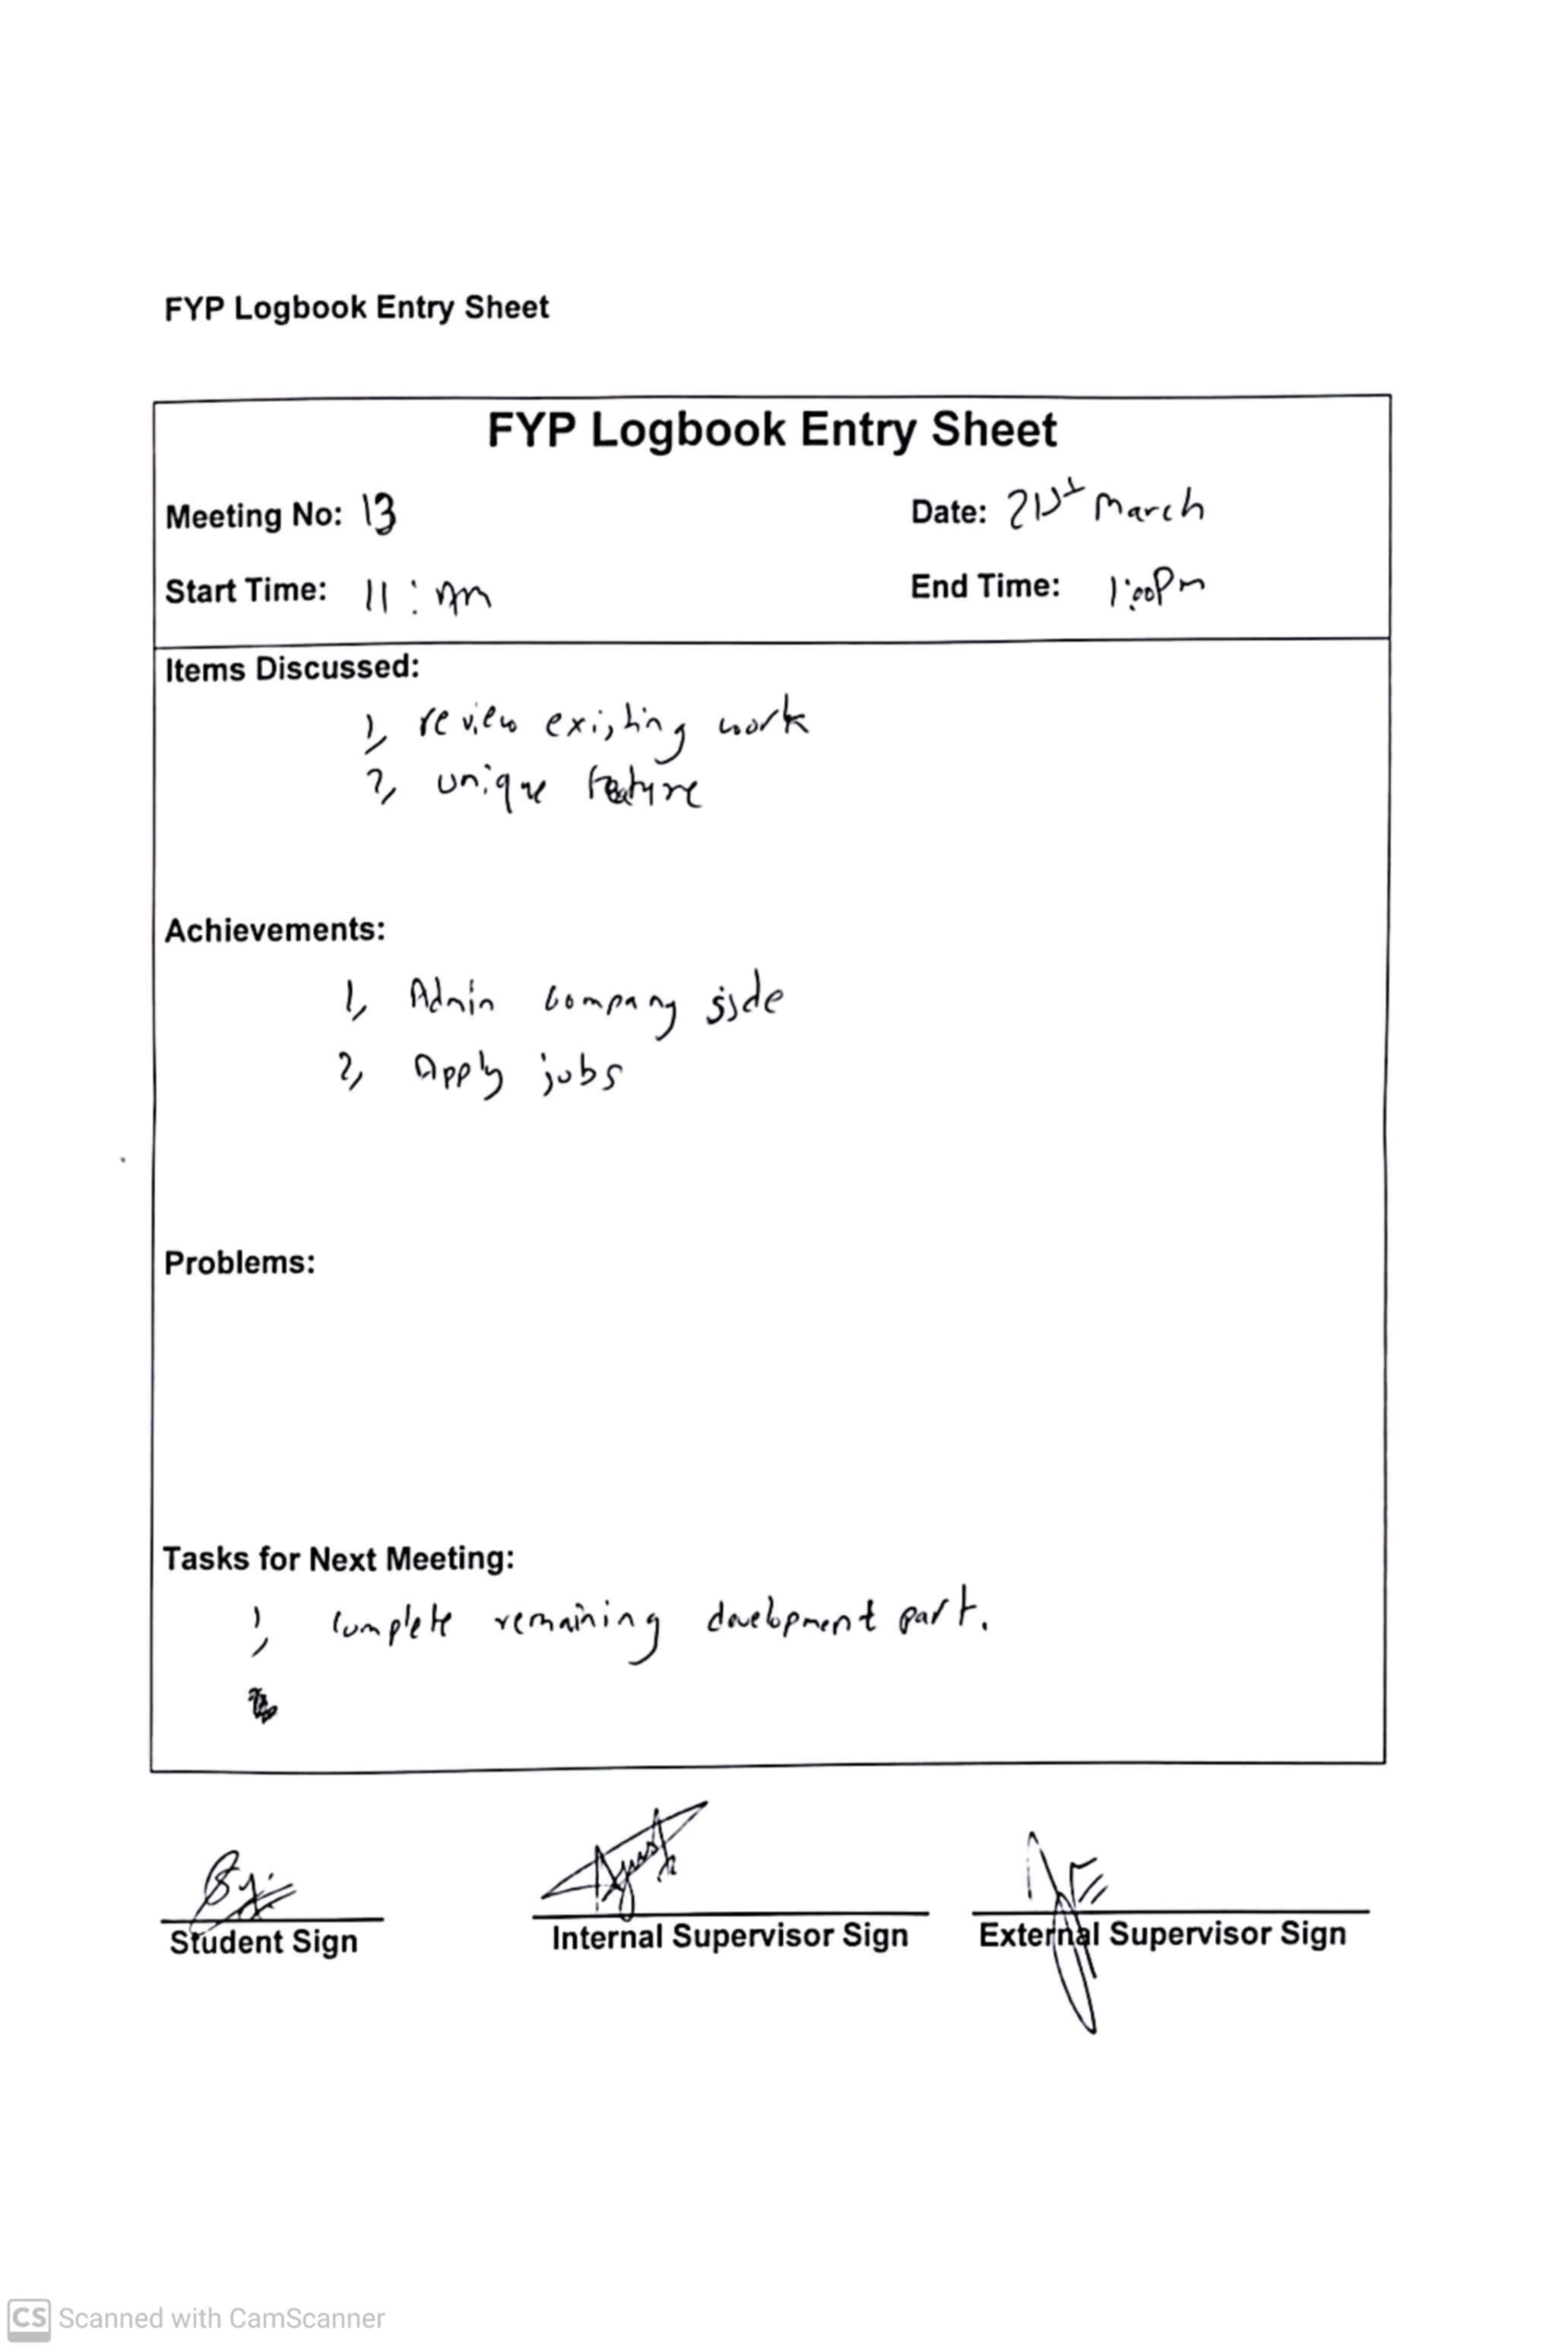 FYP Logbook Entry Sheet
FYP Logbook Entry Sheet
Meeting No: 13
Date: 21st March
Start Time: 11 : Am
End Time: 1:00Pm
Items Discussed:
1, review existing work
2, unique feature
Achievements:
1, Admin company side
2, Apply jobs
Problems:
Tasks for Next Meeting:
1, complete remaining development part.
Student Sign
Internal Supervisor Sign
External Supervisor Sign
CS Scanned with CamScanner